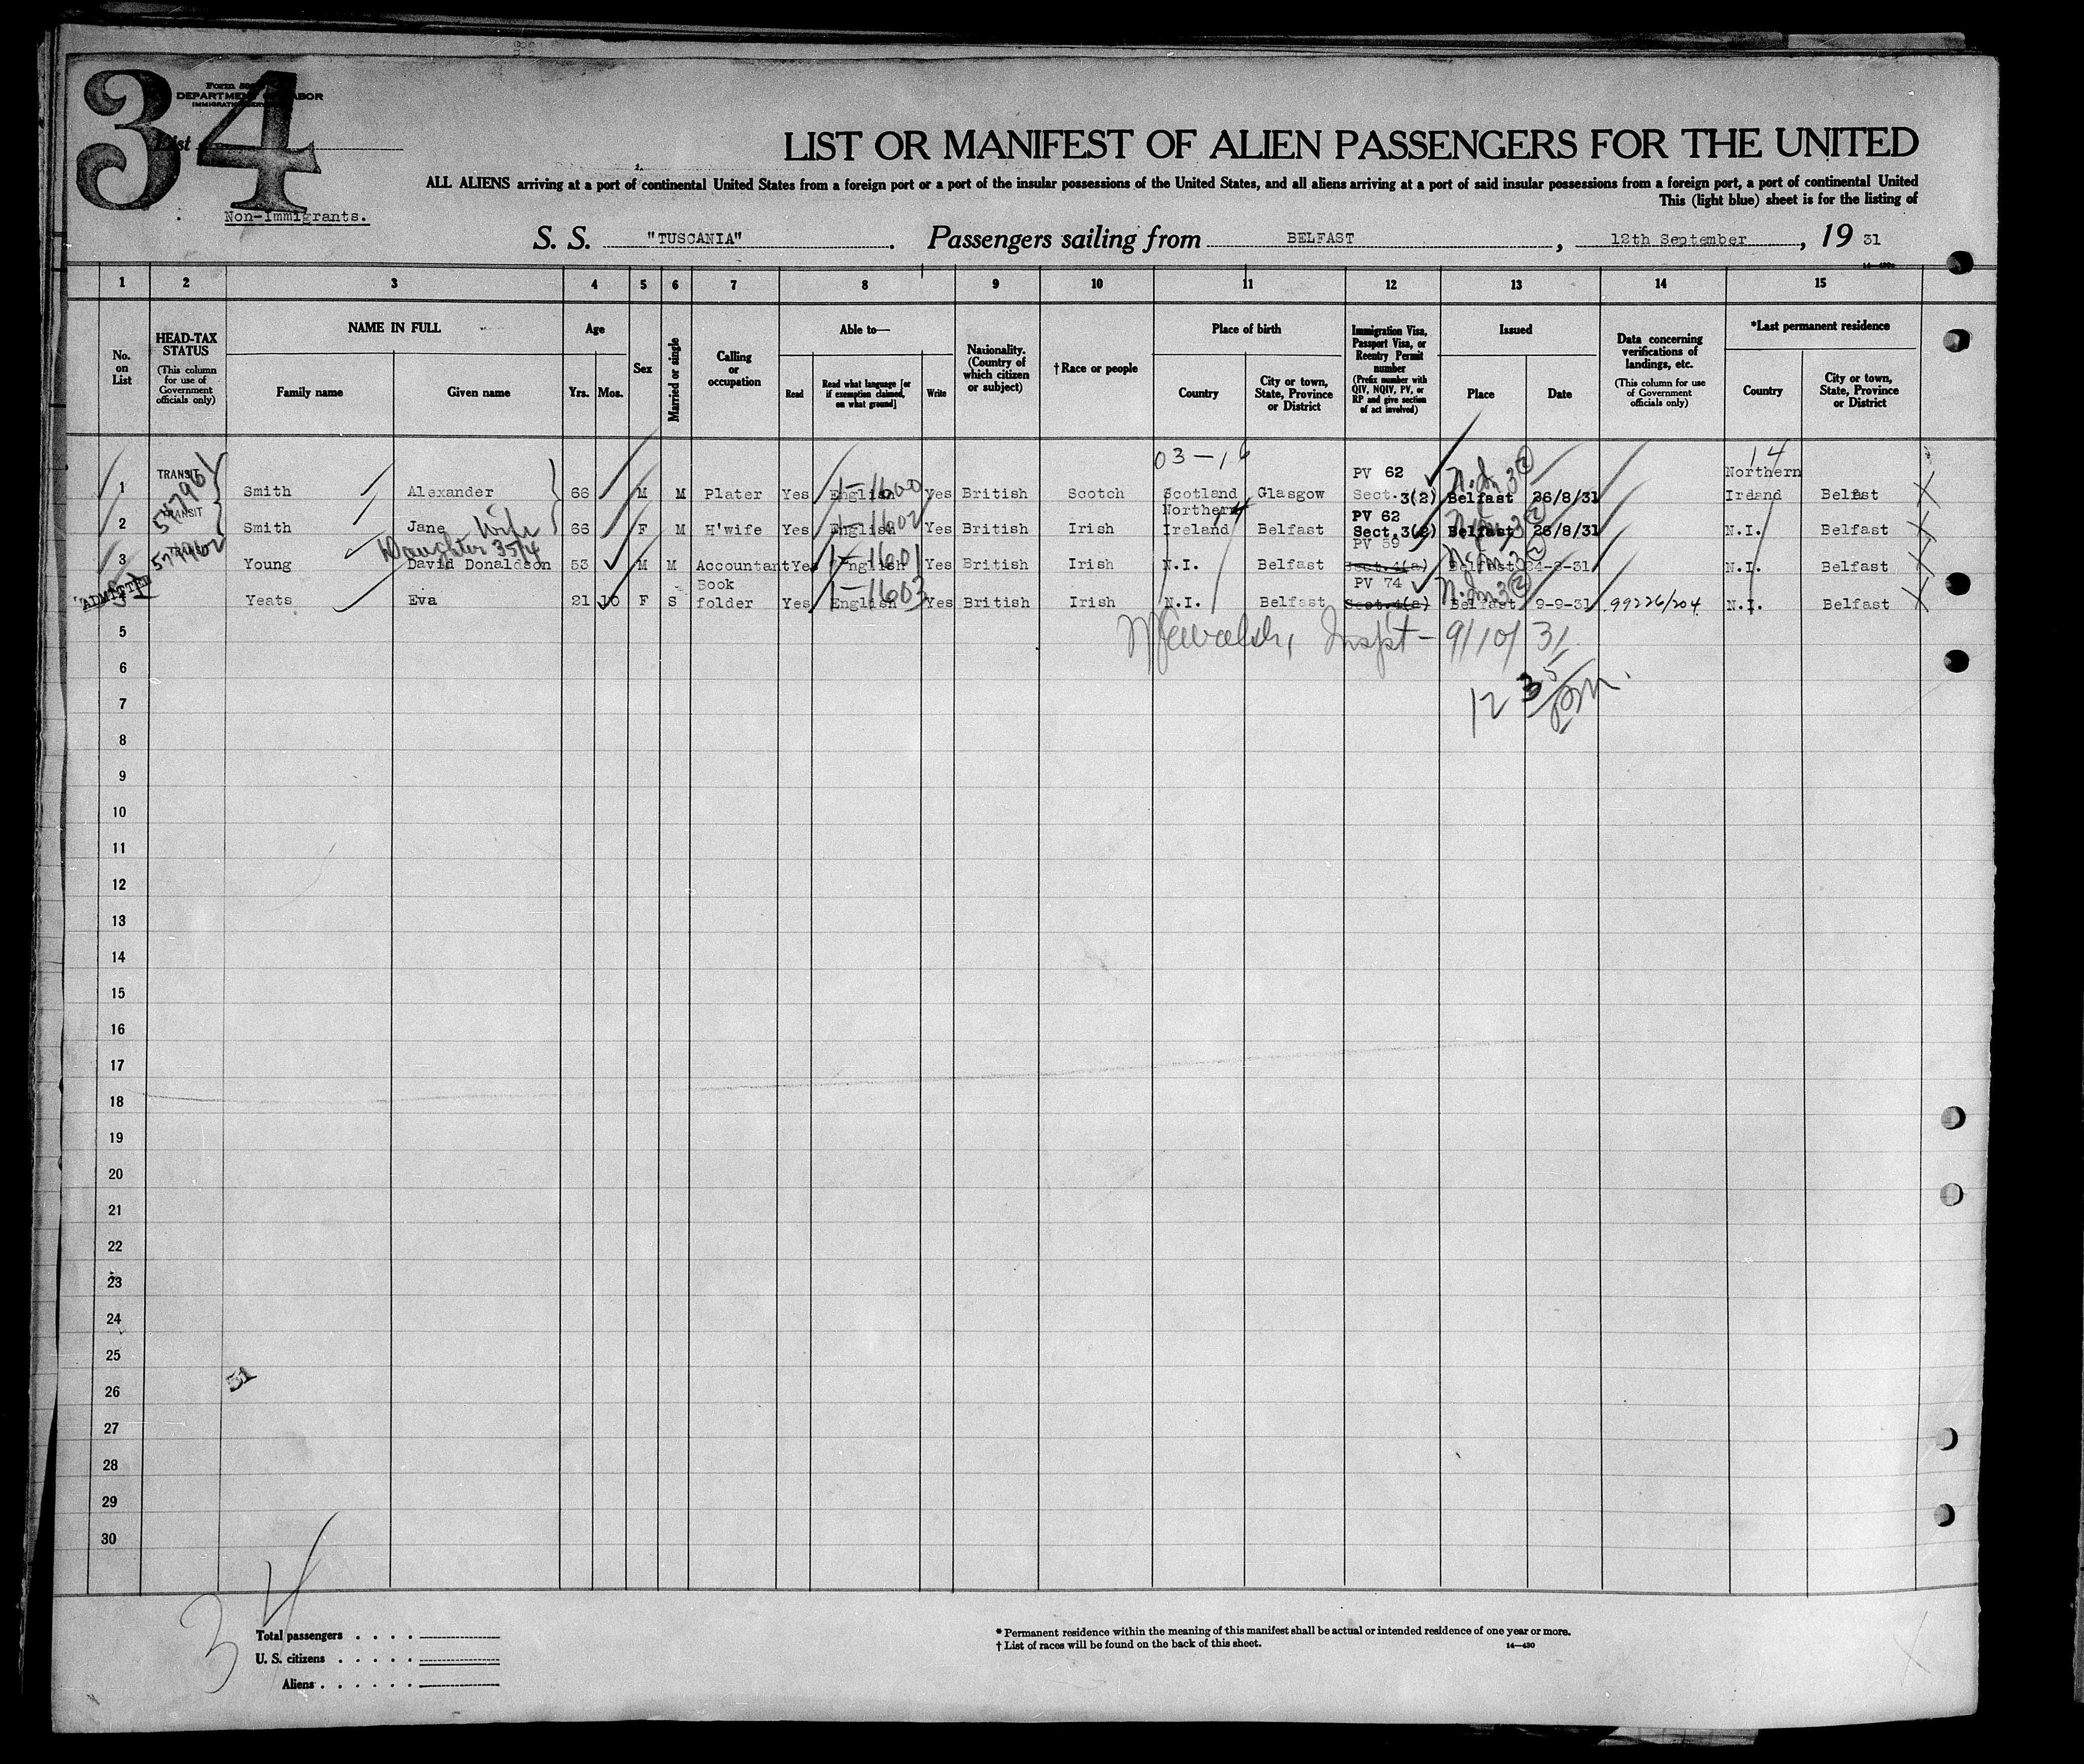 34
Form 50
DEPARTMENT LABOR
IMMIGRATION
List
LIST OR MANIFEST OF ALIEN PASSENGERS FOR THE UNITED
ALL ALIENS arriving at a port of continental United States from a foreign port or a port of the insular possessions of the United States, and all aliens arriving at a port of said insular possessions from a foreign port, a port of continental United
This (light blue) sheet is for the listing of
Non-Immigrants.
S. S. "TUSCANIA". Passengers sailing from BELFAST, 12th September, 19 31
1 2 3 4 5 6 7 8 9 10 11 12 13 14 15
No. on List
HEAD-TAX STATUS (This column for use of Government officials only)
NAME IN FULL
Family name Given name
Age
Yrs. Mos.
Sex
Married or single
Calling or occupation
Able to—
Read Read what language [or if exemption claimed, on what ground] Write
Nationality. (Country of which citizen or subject)
†Race or people
Place of birth
Country City or town, State, Province or District
Immigration Visa, Passport Visa, or Reentry Permit number (Prefix number with QIV, NQIV, PV, or RP and give section of act involved)
Issued
Place Date
Data concerning verifications of landings, etc. (This column for use of Government officials only)
*Last permanent residence
Country City or town, State, Province or District
03-16 14
TRANSIT PV 62 Northern
1 Smith Alexander 66 M M Plater Yes English 1-1600 Yes British Scotch Scotland Glasgow Sect. 3(2) Belfast 26/8/31 Ireland Belfast
TRANSIT Wife Northern PV 62
2 Smith Jane 66 F M H'wife Yes English 1-1602 Yes British Irish Ireland Belfast Sect.3(2) Belfast 26/8/31 N.I. Belfast
TRANSIT Daughter 35/4 PV 59
3 Young David Donaldson 53 M M Accountant Yes English 1-1601 Yes British Irish N.I. Belfast Sect.4(a) Belfast N.I. Belfast
ADMITTED Book PV 74
Yeats Eva 21 10 F S folder Yes English 1-1603 Yes British Irish N.I. Belfast Sect.4(a) Belfast 9-9-31 99226/204 N.I. Belfast
5 Inspt- 9/10/31
6
7 12 35 pm.
8
9
10
11
12
13
14
15
16
17
18
19
20
21
22
23
24
25
26 51
27
28
29
30
34
Total passengers
U. S. citizens
Aliens
* Permanent residence within the meaning of this manifest shall be actual or intended residence of one year or more.
† List of races will be found on the back of this sheet.
14—430